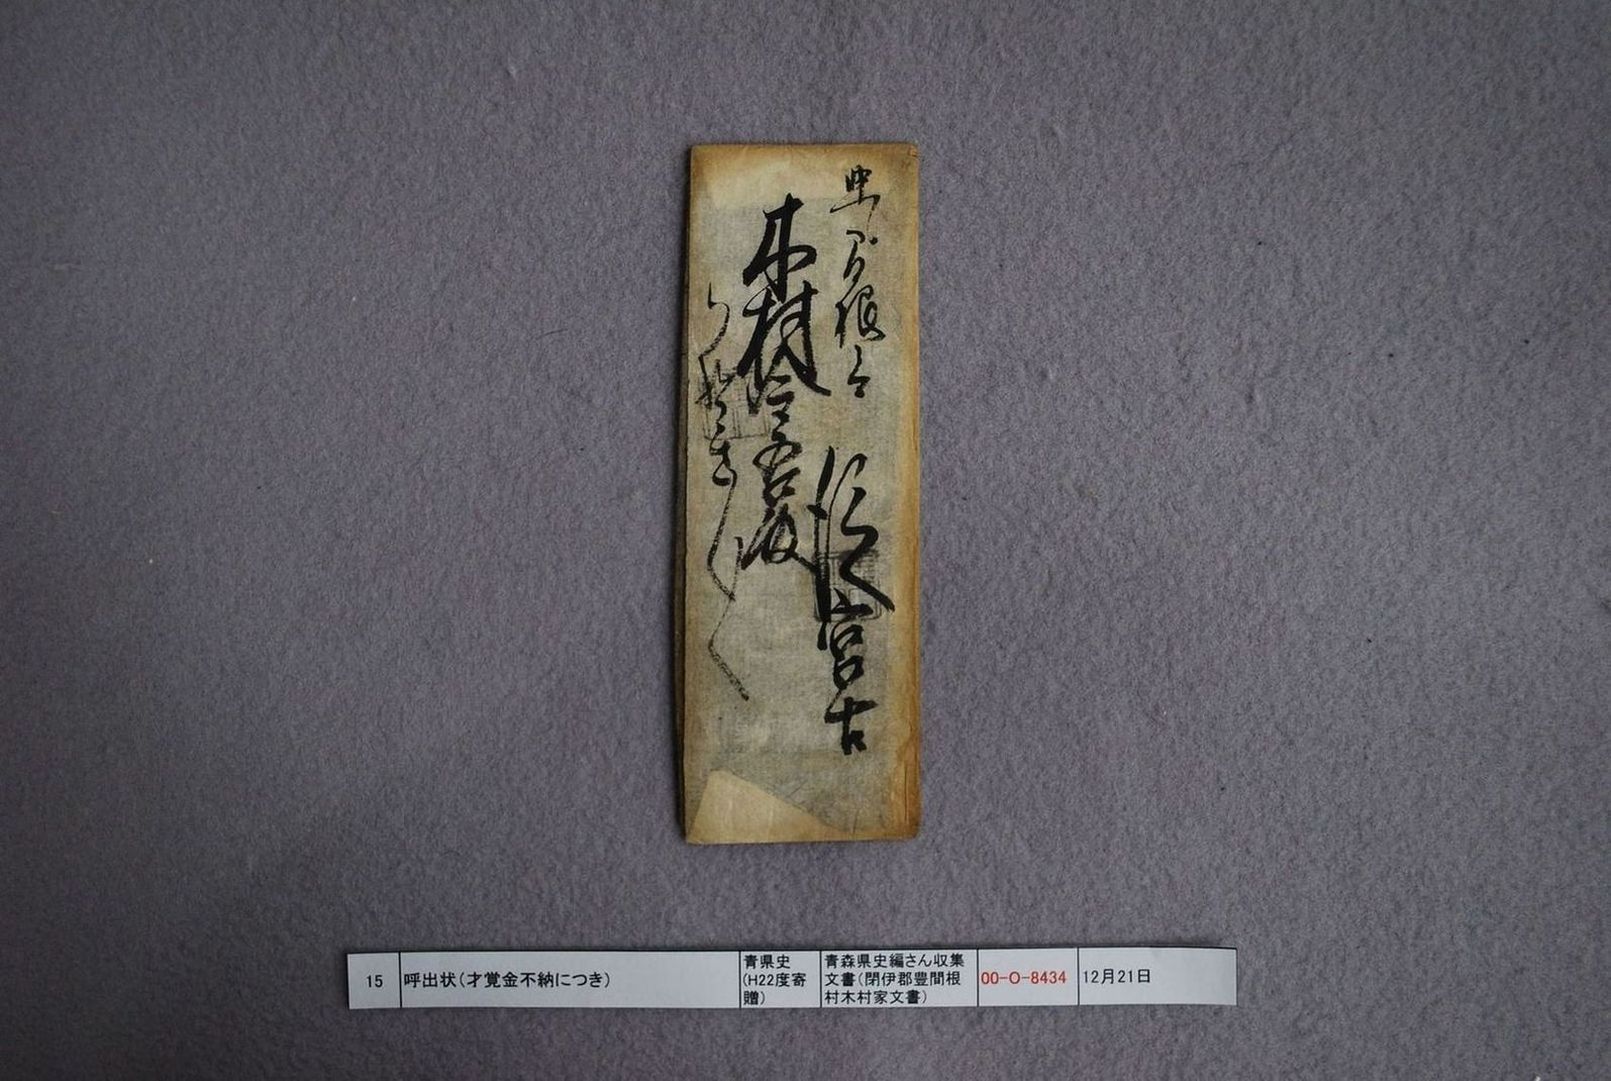 豊間根ニ而
従宮古
木村今吾殿
15
呼出状(才覚金不納につき)
青県史
(H22度寄
贈)
青森県史編さん収集
文書(閉伊郡豊間根
村木村家文書)
00-O-8434
12月21日